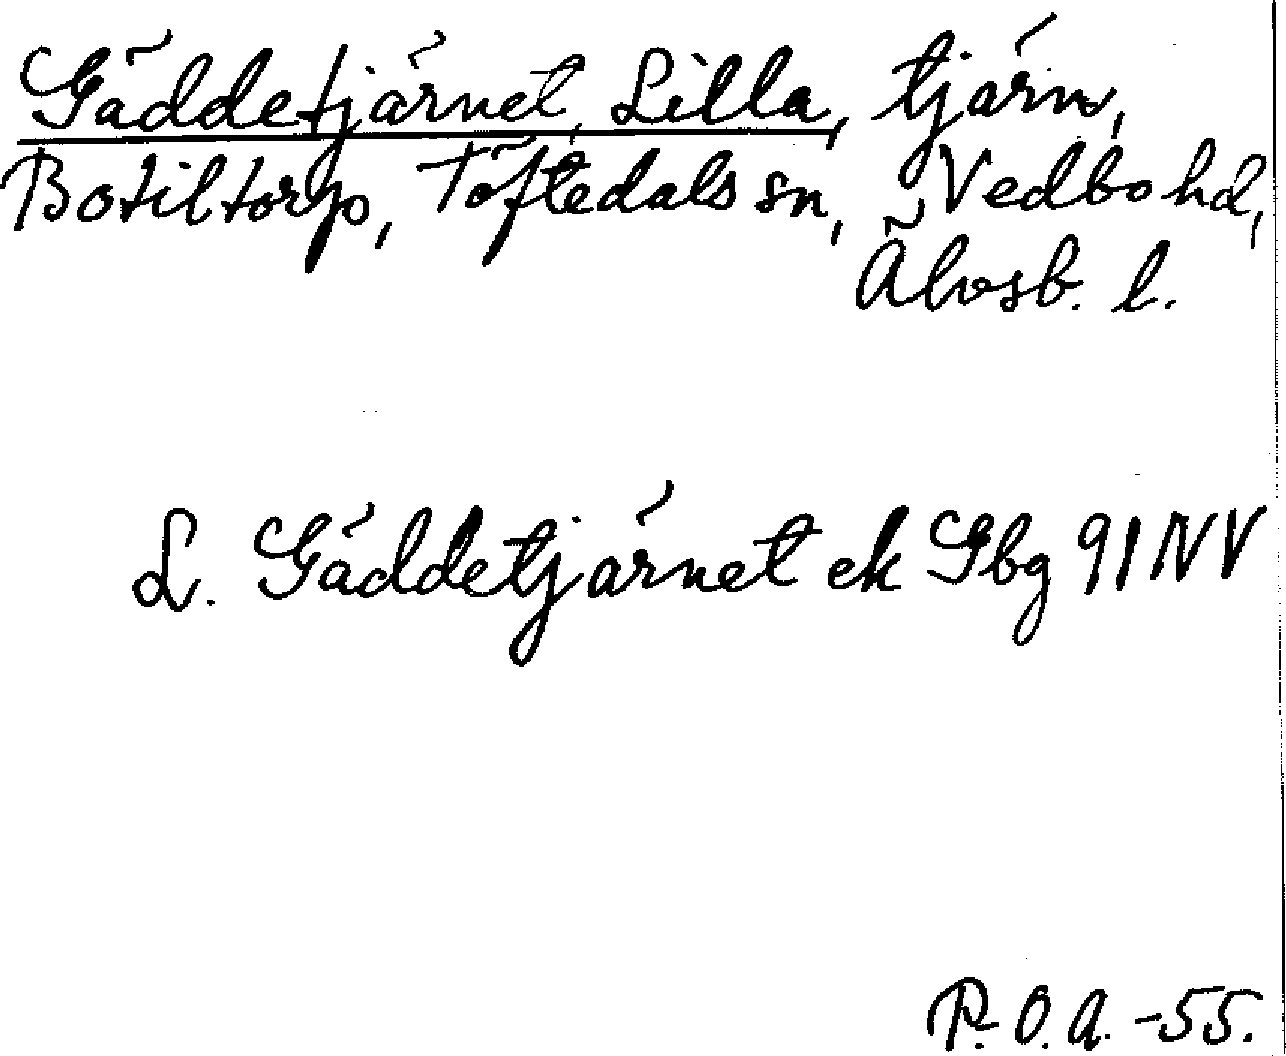 Gäddetjärnet, Lilla, tjärn,
Botiltorp, Töftedals sn, Vedbo hd,
Älvsb. l.
L. Gäddetjärnet ek Gbg 91 NV
P.O.A. -55.